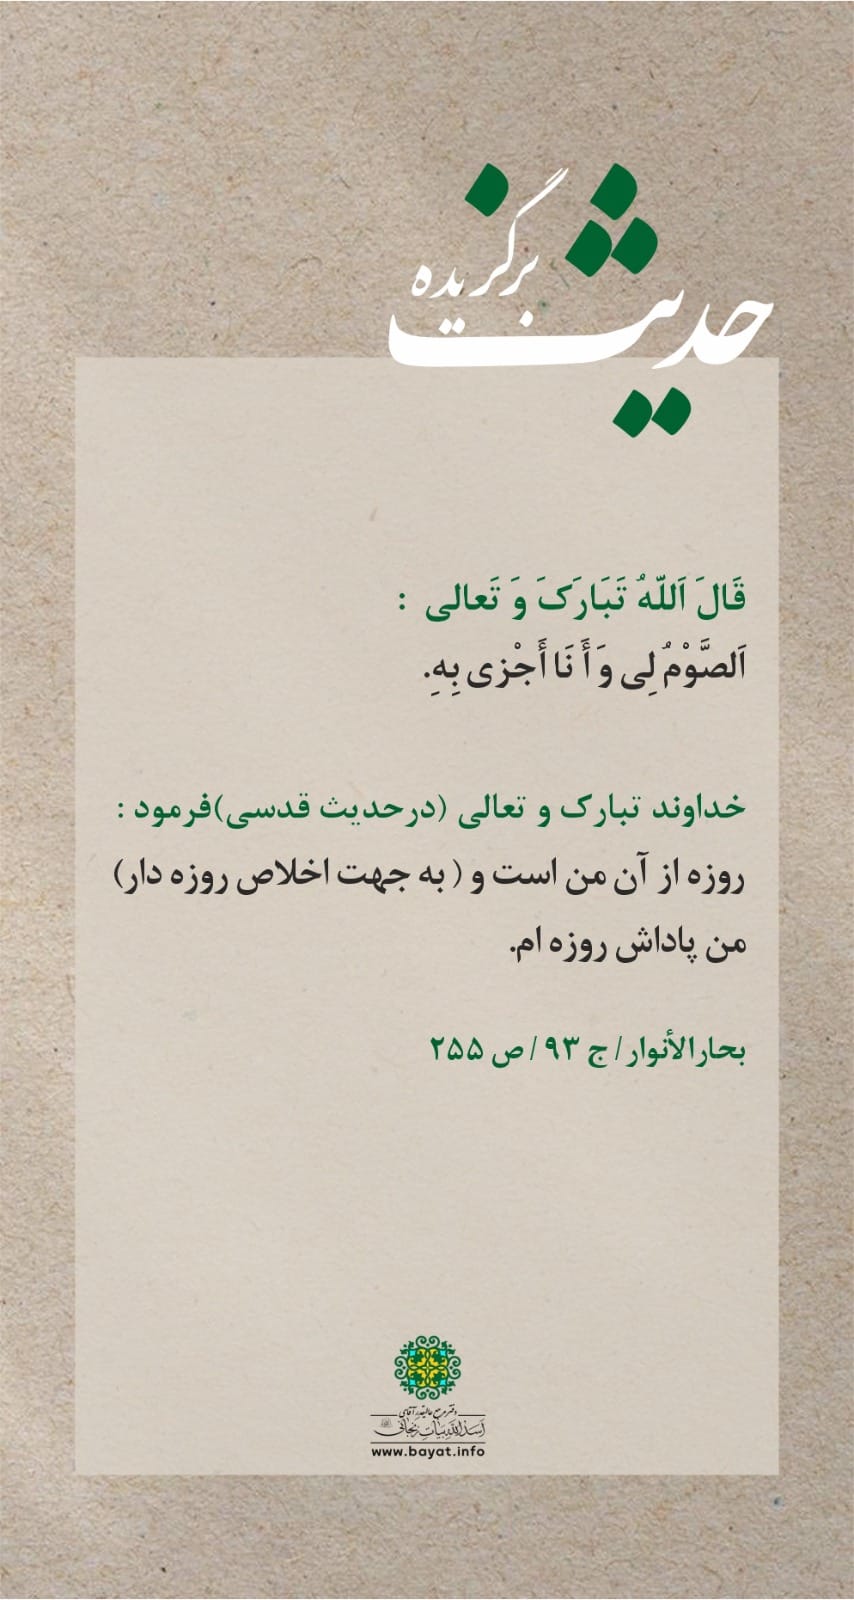 حدیث برگزیده
قَالَ اَللّهُ تَبَارَکَ وَ تَعالی :
اَلصَّوْمُ لِی وَ أَنَا أَجْزی بِهِ.
خداوند تبارک و تعالی (درحدیث قدسی)فرمود :
روزه از آن من است و ( به جهت اخلاص روزه دار)
من پاداش روزه ام.
بحارالأنوار/ ج ۹۳ / ص ۲۵۵
دفتر مرجع عالیقدر آقای
اسدالله بیات زنجانی
www.bayat.info